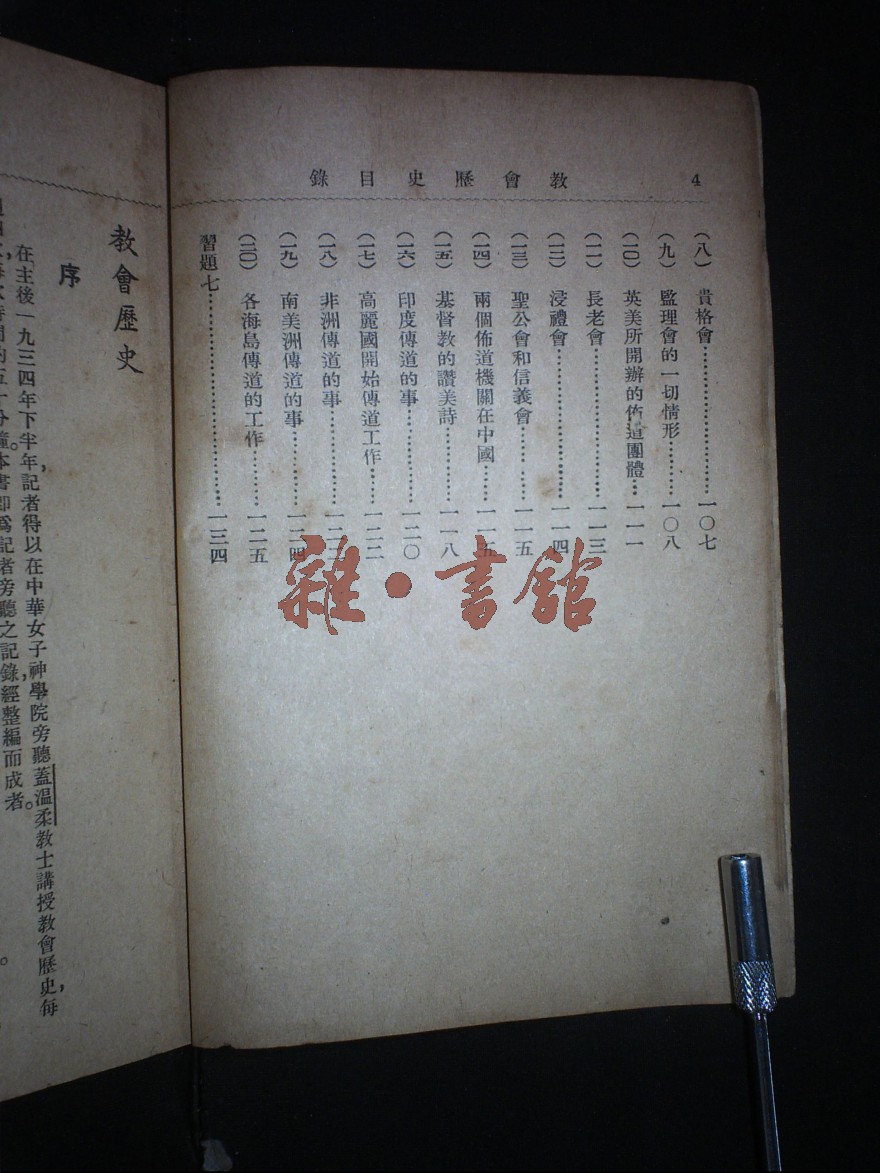 教會歷史目錄 4
(八) 貴格會………一〇七
(九) 監理會的一切情形………一〇八
(一〇) 英美所開辦的佈道團體………一一一
(一一) 長老會………一一三
(一二) 浸禮會………一一四
(一三) 聖公會和信義會………一一五
(一四) 兩個佈道機關在中國………一一五
(一五) 基督教的讚美詩………一一八
(一六) 印度傳道的事………一二〇
(一七) 高麗國開始傳道工作………一二二
(一八) 非洲傳道的事………一二三
(一九) 南美洲傳道的事………一二四
(二〇) 各海島傳道的工作………一二五
習題七………一三四
雜·書館
教會歷史
序
在主後一九三四年下半年,記者得以在中華女子神學院旁聽蓋温柔教士講授教會歷史,每
五十分鐘。本書即爲記者旁聽之記錄,經整編而成者。